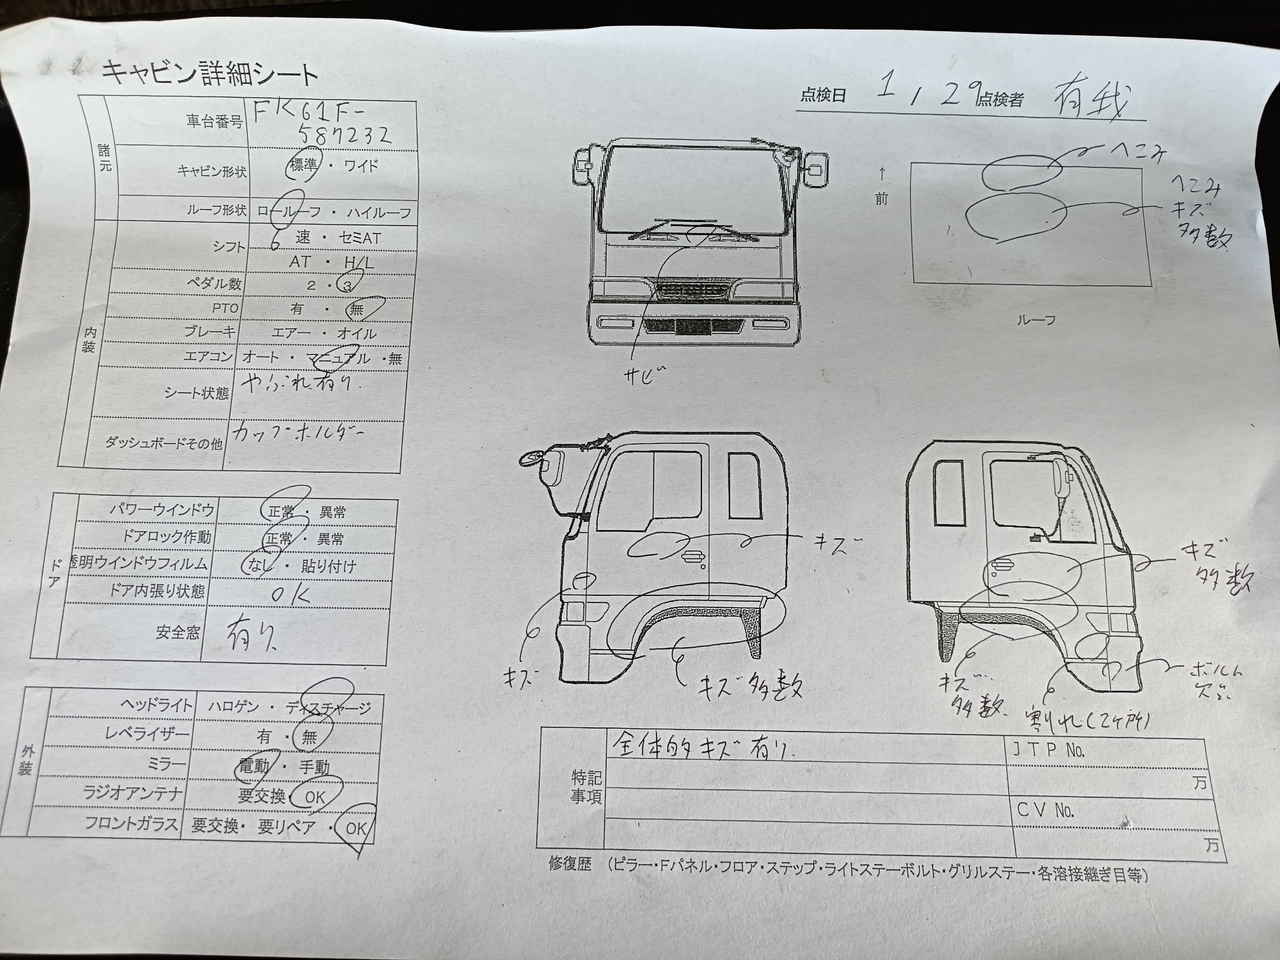 キャビン詳細シート
点検日 1 / 29 点検者 有我
諸元
車台番号 FK61F-
587232
キャビン形状 標準 ・ ワイド
ルーフ形状 ロールーフ ・ ハイルーフ
内装
シフト 6 速 ・ セミAT
AT ・ H/L
ペダル数 2 ・ 3
PTO 有 ・ 無
ブレーキ エアー ・ オイル
エアコン オート ・ マニュアル ・無
シート状態 やぶれ有り.
ダッシュボードその他 カップホルダー
ドア
パワーウインドウ 正常 ・ 異常
ドアロック作動 正常 ・ 異常
透明ウインドウフィルム なし ・ 貼り付け
ドア内張り状態 OK
安全窓 有り
外装
ヘッドライト ハロゲン ・ ディスチャージ
レベライザー 有 ・ 無
ミラー 電動 ・ 手動
ラジオアンテナ 要交換・ OK
フロントガラス 要交換・ 要リペア ・ OK
サビ
↑
前
へこみ
へこみ
キズ
多数
ルーフ
キズ
キズ
キズ多数
キズ
多数
キズ
多数
割れ(2ヶ所)
ボルト
特記
事項
全体的キズ有り.
JTP No.
万
CV No.
万
修復歴 (ピラー・Fパネル・フロア・ステップ・ライトステーボルト・グリルステー・各溶接継ぎ目等)